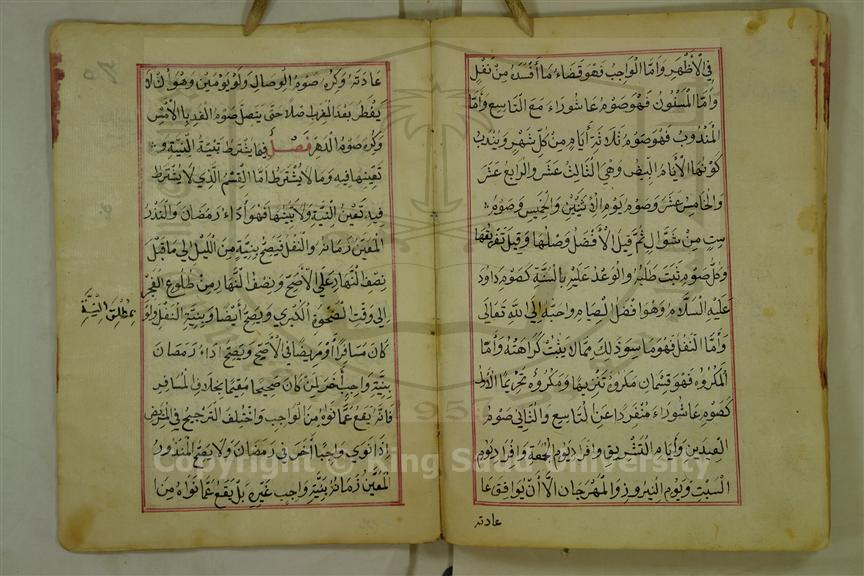 في الأظهر وأما الواجب فهو قضاء ما أفسده من نفل
وأما المسنون فهو صوم عاشوراء مع التاسع وأما
المندوب فهو صوم ثلاثة أيام من كل شهر ويندب
كونها الأيام البيض وهي الثالث عشر والرابع عشر
والخامس عشر وصوم يوم الاثنين والخميس وصوم
ست من شوال ثم قيل الأفضل وصلها وقيل تفريقها
وكل صوم ثبت طلبه والوعد عليه بالسنة كصوم داود
عليه السلام وهو أفضل الصيام وأحبه إلى الله تعالى
وأما النفل فهو ما سوى ذلك مما لم يثبت كراهته وأما
المكروه فهو قسمان مكروه تنزيها ومكروه تحريما الأول
كصوم عاشوراء منفردا عن التاسع والثاني صوم
العيدين وأيام التشريق وإفراد يوم الجمعة وإفراد يوم
السبت ويوم النيروز والمهرجان الا أن يوافق عا
عادته
عادته وكره صوم الوصال ولو يومين وهو أن لا
يفطر بعد الغروب اصلا حتى يتصل صوم الغد بالأمس
وكره صوم الدهر فصل فيما يشترط تبيت النية و
تعيينها فيه وما لا يشترط أما القسم الذي لا يشترط
فيه تعيين النية ولا تبيتها فهو أداء رمضان والنذر
المعين زمانه والنفل فيصح بنية من الليل إلى ما قبل
نصف النهار على الأصح ونصف النهار من طلوع الفجر
إلى وقت الضحوة الكبرى ويصح أيضا وبنية النفل ولو
بمطلق النية
كان مسافرا أو مريضا في الأصح ويصح أداء رمضان
بنية واجب أخر لمن كان صحيحا مقيما بخلاف المسافر
فانه يقع عما نواه من الواجب واختلف الترجيح في المريض
إذا نوى واجبا أخر في رمضان ولا يصح المنذور
المعين زمانه بنية واجب غيره بل يقع عما نواه من ا
Copyright © King Saud University
1957